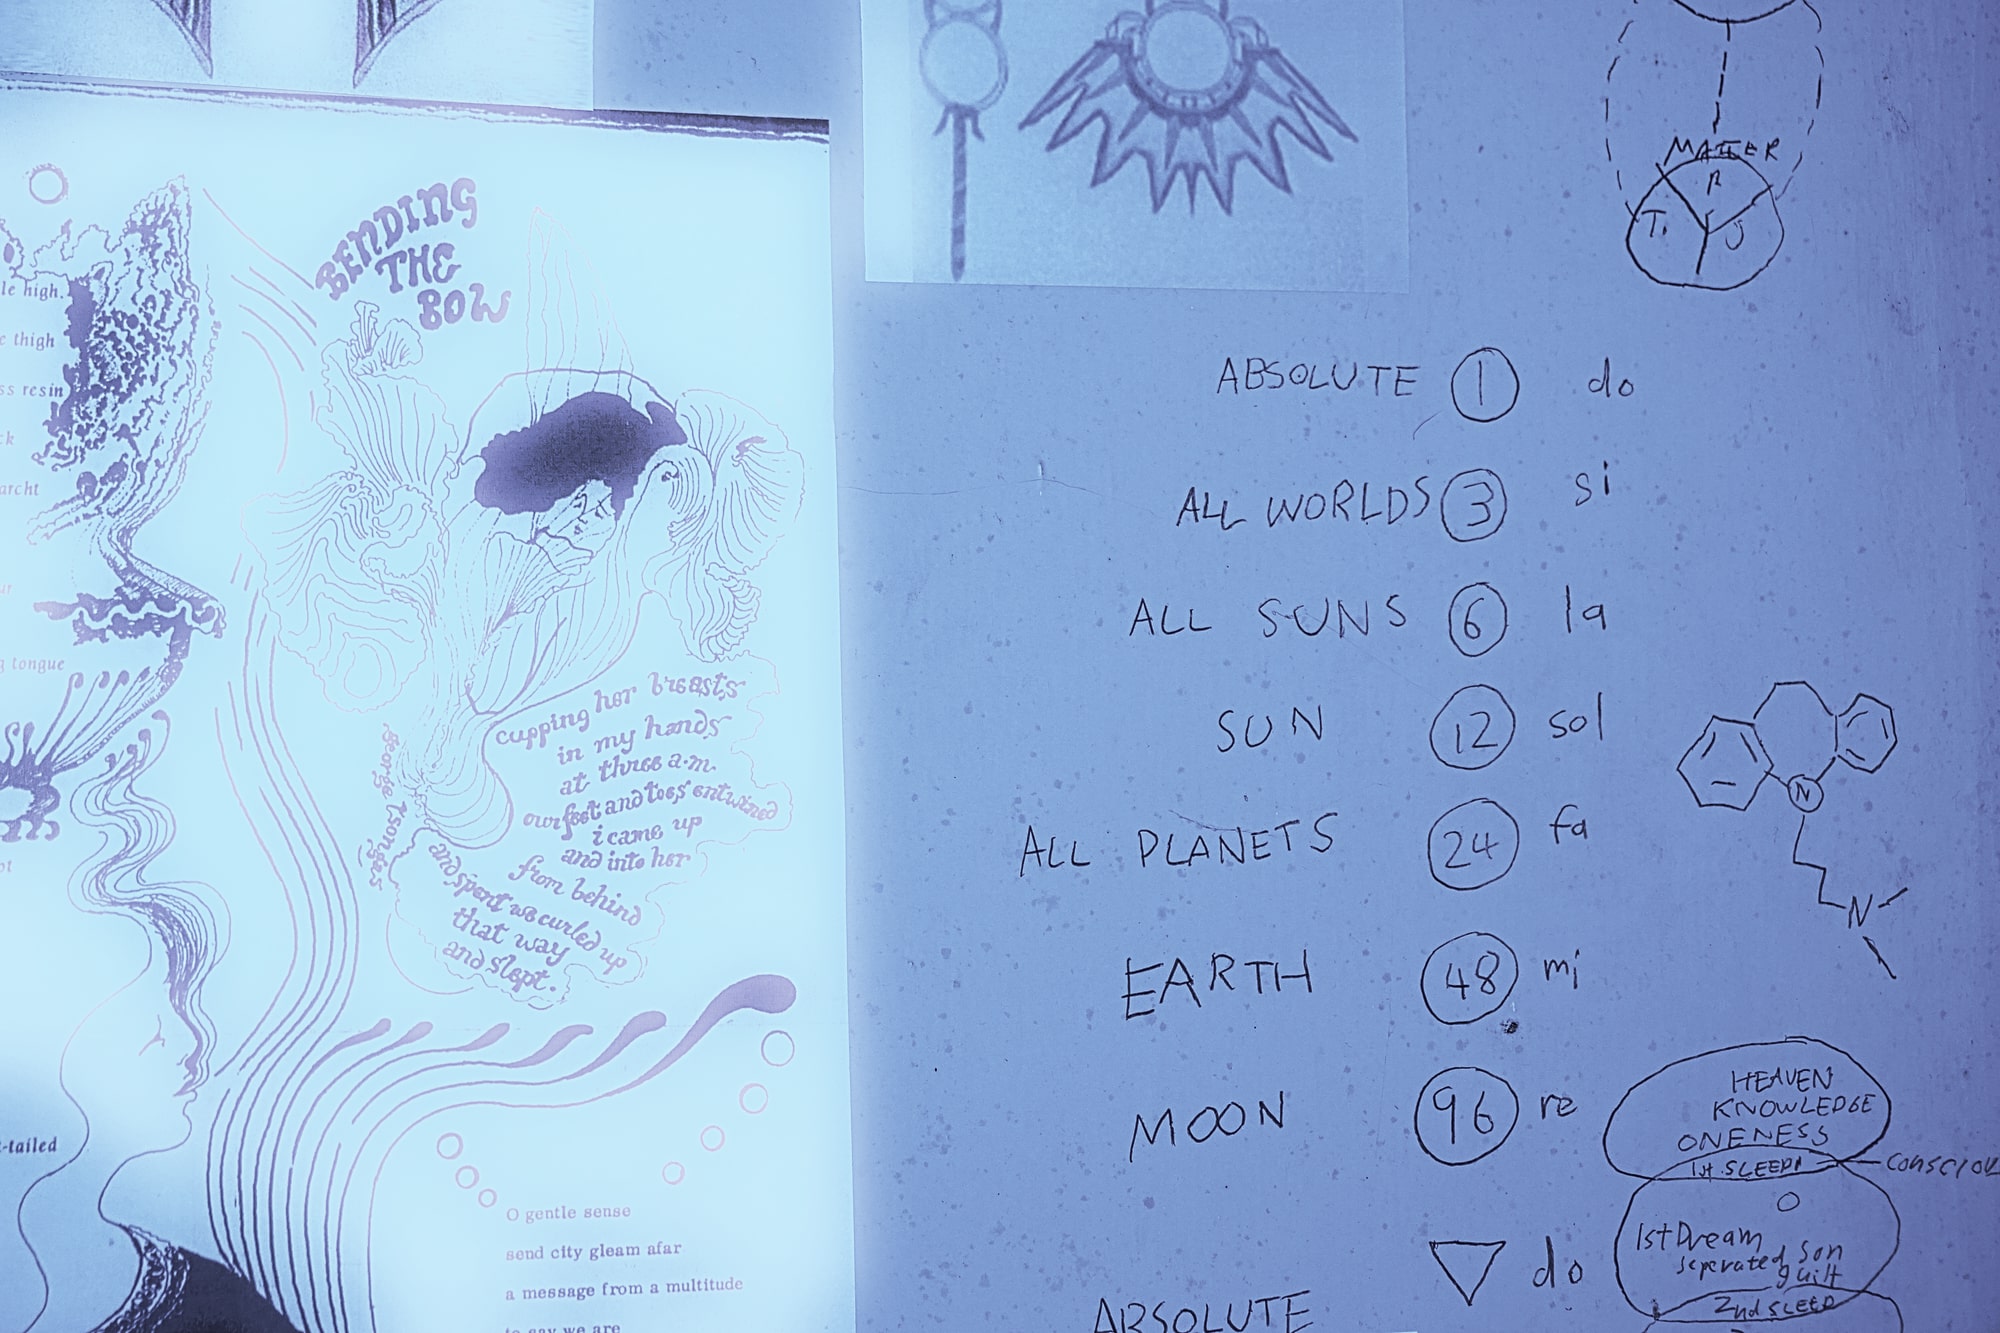 le high.
thigh
ss resin
ck
archt
ur
g tongue
ot
-tailed
BENDING
THE
BOW
cupping her breasts
in my hands
at three a.m.
our feet and toes entwined
i came up
and into her
from behind
and spent we curled up
that way
and slept.
george tsongas
O gentle sense
send city gleam afar
a message from a multitude
to say we are
MATTER
R
T. J
ABSOLUTE 1 do
ALL WORLDS 3 si
ALL SUNS 6 la
SUN 12 sol
ALL PLANETS 24 fa
EARTH 48 mi
MOON 96 re
do
ABSOLUTE
N
N
HEAVEN
KNOWLEDGE
ONENESS
1st SLEEP
CONSCIOU
1st Dream
seperated Son
guilt
2nd SLEEP